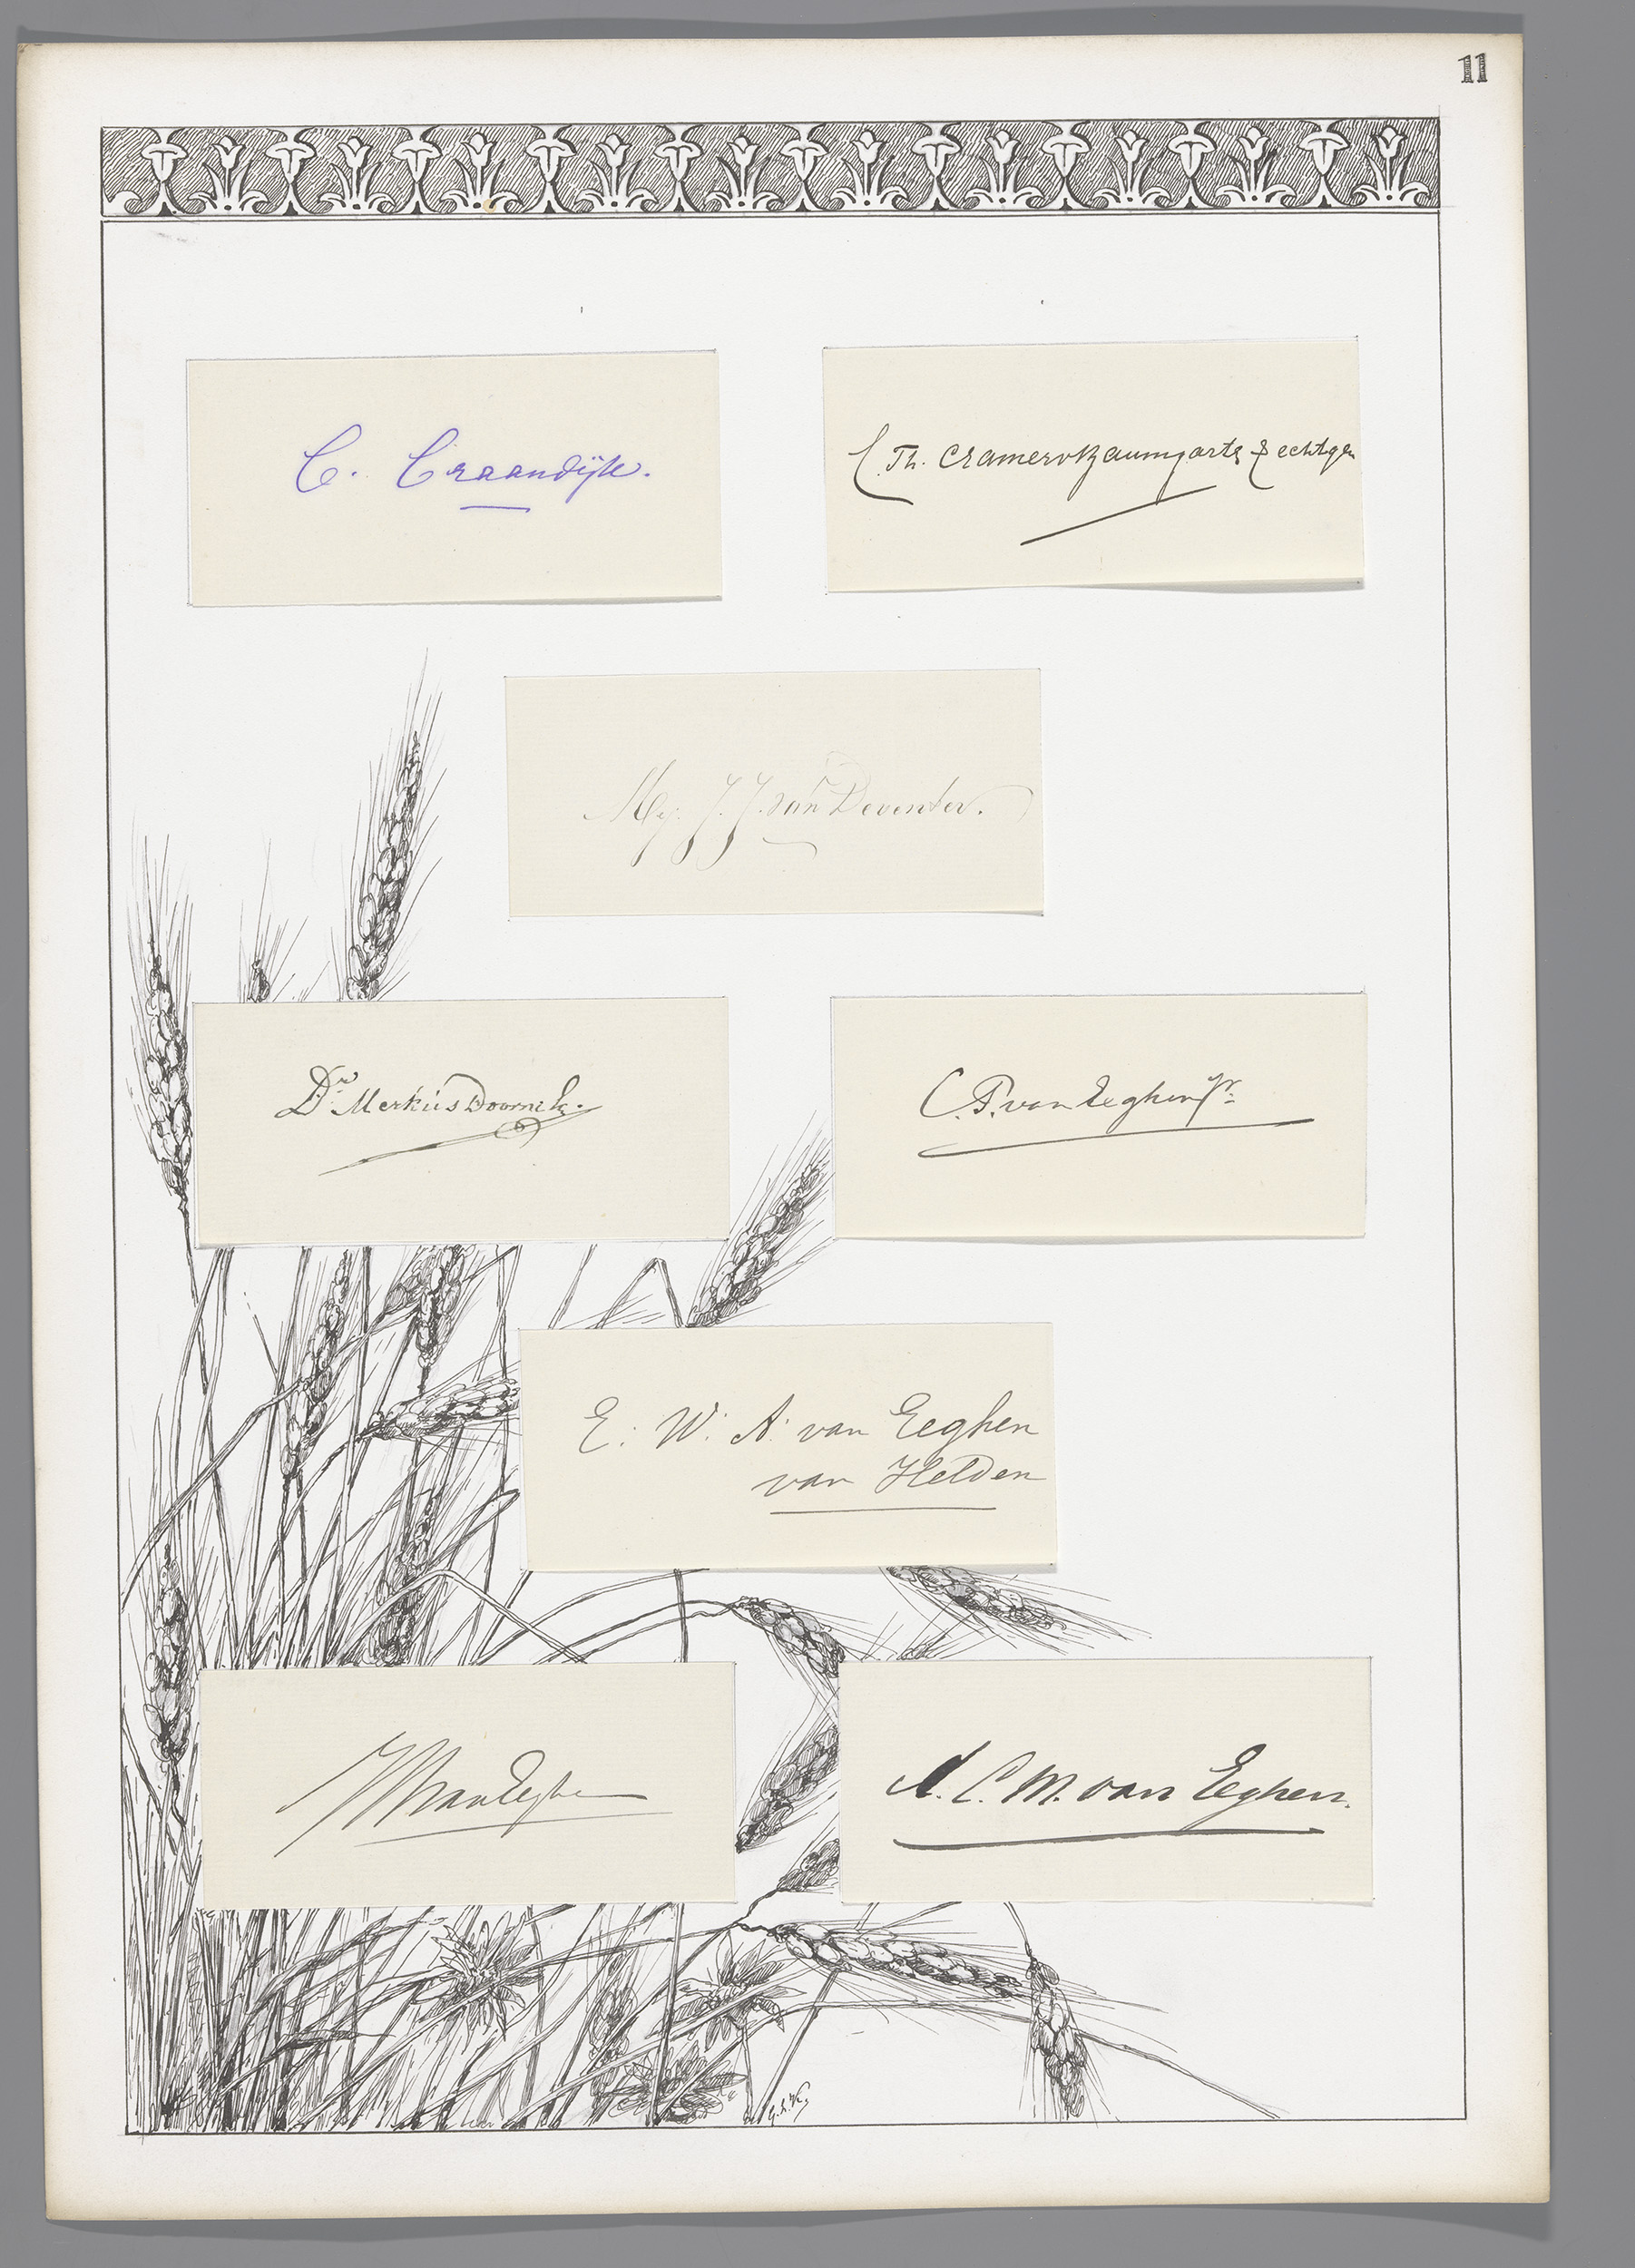 11
C. Craandijk.
C. Th. Cramer v Baumgarten & echtgen
Mej: J. J. van Deventer.
Dr. Merkus Doornik.
C. P. van Eeghen Jr.
E: W: A: van Eeghen
van Helden
van Eeghen
A. C. M. van Eeghen.